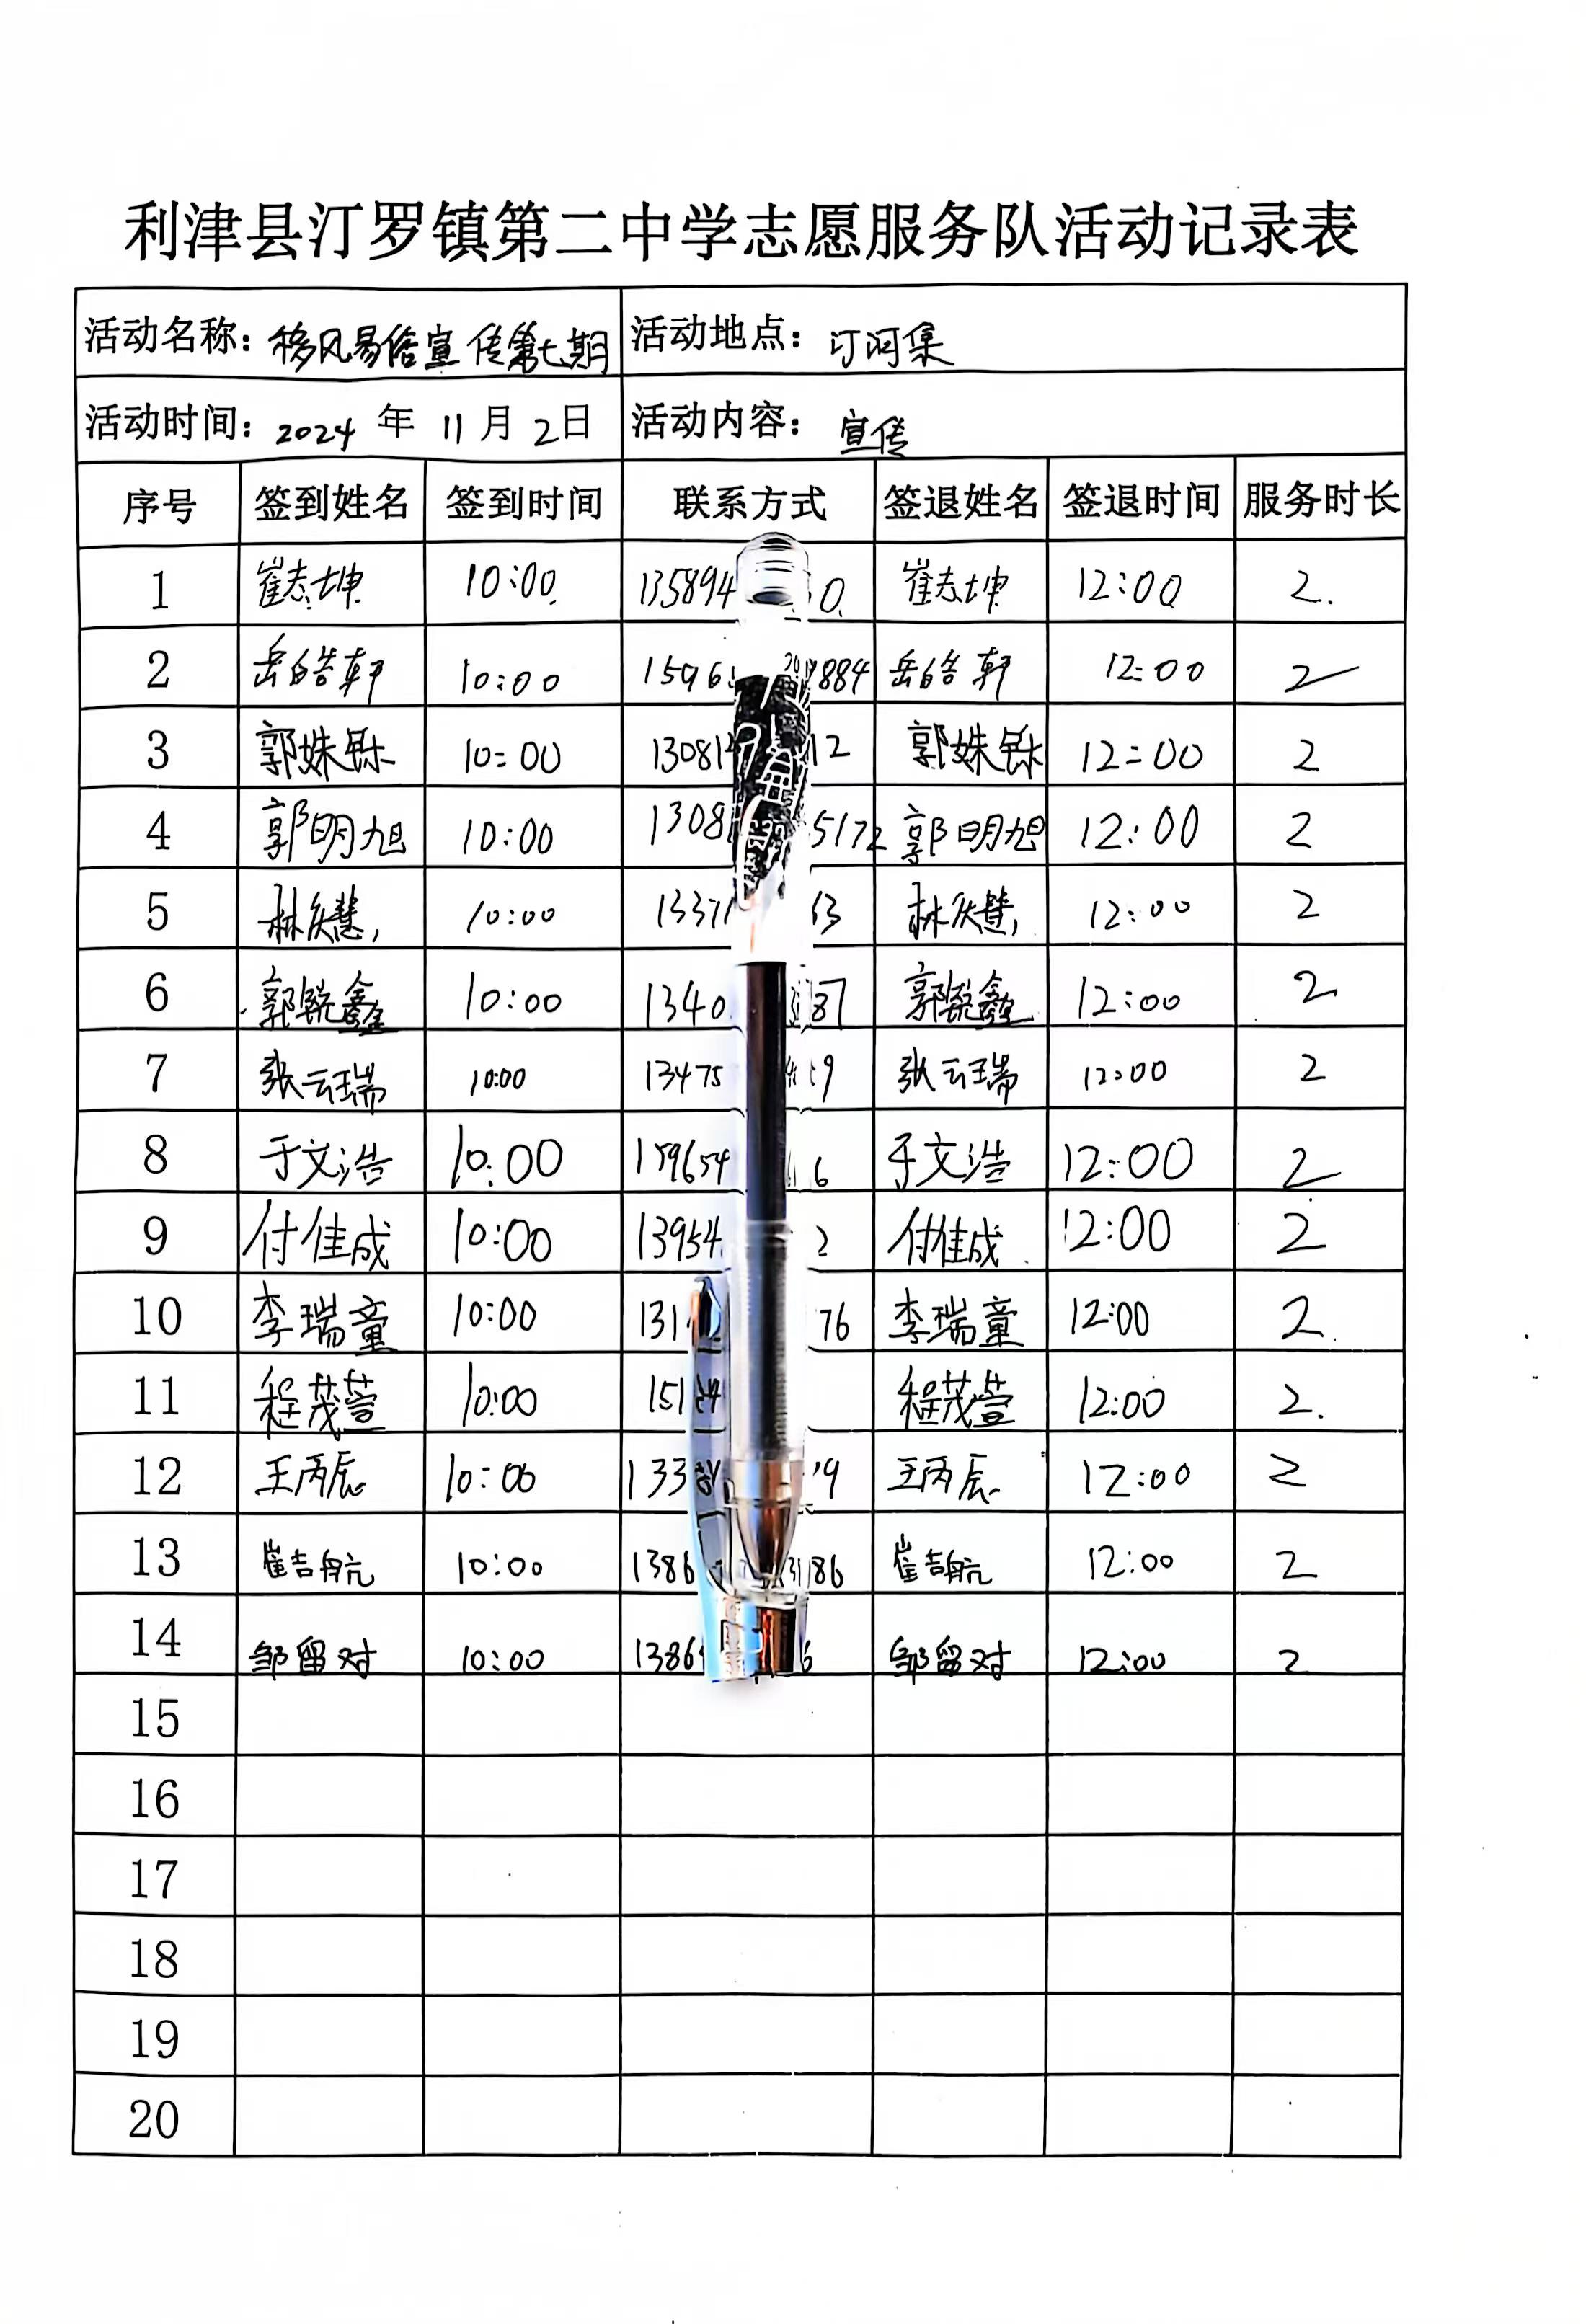 利津县汀罗镇第二中学志愿服务队活动记录表
活动名称：移风易俗宣传第七期 活动地点：汀河集
活动时间：2024 年 11 月 2 日 活动内容：宣传
序号 签到姓名 签到时间 联系方式 签退姓名 签退时间 服务时长
1 崔志坤 10:00 135894 0 崔志坤 12:00 2
2 岳皓轩 10:00 1596 884 岳皓轩 12:00 2
3 郭姝铄 10:00 1308 12 郭姝铄 12:00 2
4 郭明旭 10:00 1308 5172 郭明旭 12:00 2
5 林庆慧 10:00 1337 3 林庆慧 12:00 2
6 郭锐鑫 10:00 1340 87 郭锐鑫 12:00 2
7 张云瑞 10:00 13475 9 张云瑞 12:00 2
8 于文浩 10:00 159654 6 于文浩 12:00 2
9 付佳成 10:00 13954 2 付佳成 12:00 2
10 李瑞童 10:00 131 76 李瑞童 12:00 2
11 程茂萱 10:00 151 程茂萱 12:00 2
12 王丙辰 10:00 133 9 王丙辰 12:00 2
13 崔吉航 10:00 1386 86 崔吉航 12:00 2
14 邹留对 10:00 1386 6 邹留对 12:00 2
15
16
17
18
19
20